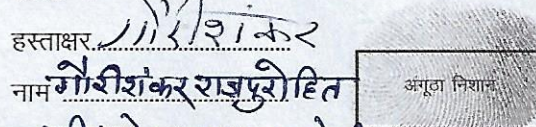 हस्ताक्षर गौरीशंकर
नाम गौरीशंकर राजपुरोहित
अंगूठा निशान